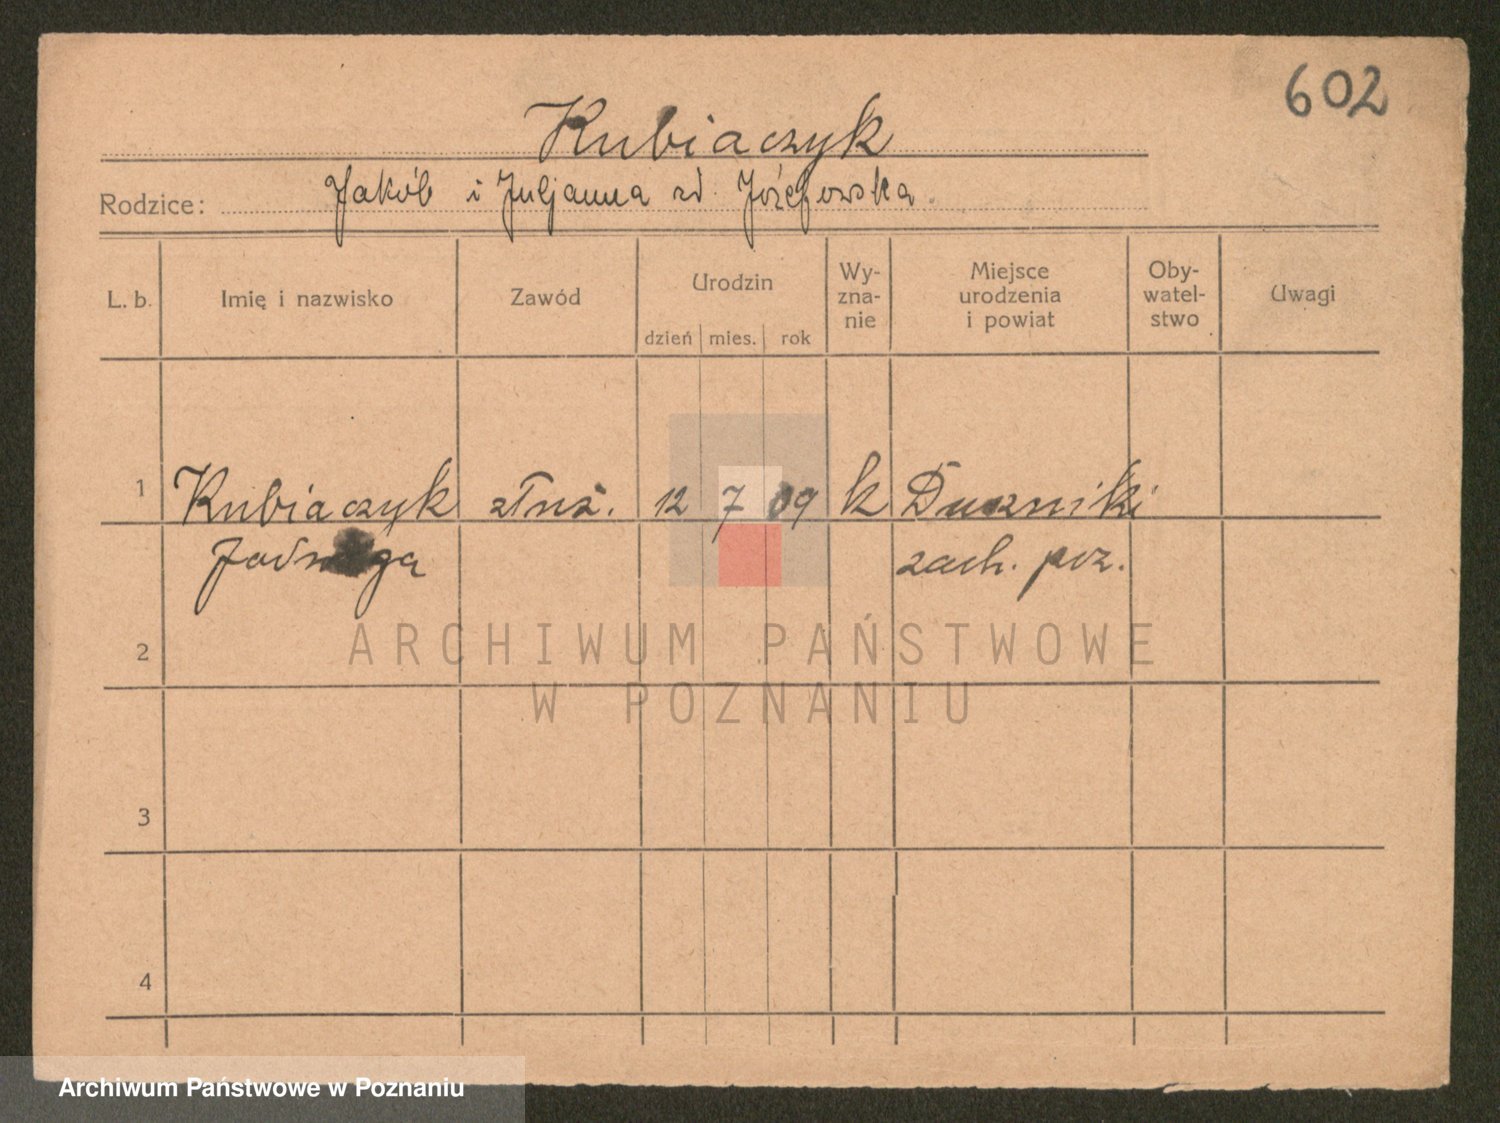 602
Kubiaczyk
Rodzice: Jakób i Juljanna zd. Józefowska.
L. b. Imię i nazwisko Zawód Urodzin dzień mies. rok Wy-zna-nie Miejsce urodzenia i powiat Oby-watel-stwo Uwagi
1 Kubiaczyk służ. 12 7 09 k Duszniki
Jadwiga zach. poz.
2
ARCHIWUM PAŃSTWOWE
W POZNANIU
3
4
Archiwum Państwowe w Poznaniu